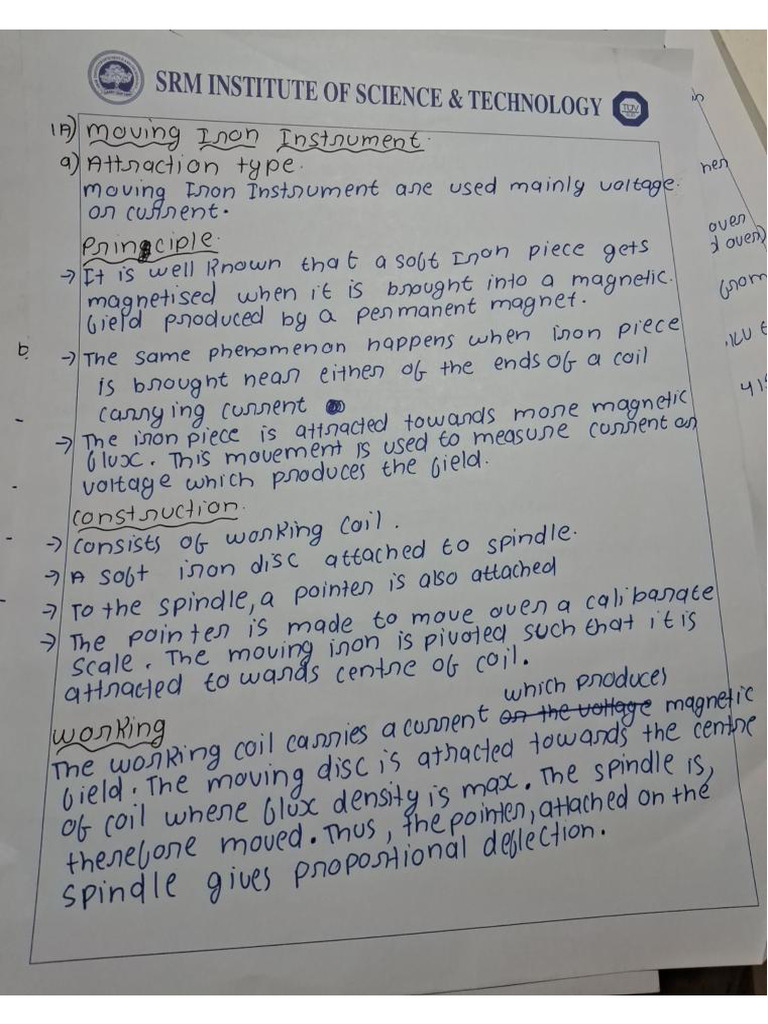 SRM INSTITUTE OF SCIENCE & TECHNOLOGY
TUV
1A) Moving Iron Instrument.
a) Attraction type.
Moving Iron Instrument are used mainly voltage
or current.
Principle.
→ It is well known that a soft Iron piece gets
magnetised when it is brought into a magnetic
field produced by a permanent magnet.
→ The same phenomenon happens when iron piece
is brought near either of the ends of a coil
carrying current
→ The iron piece is attracted towards more magnetic
flux. This movement is used to measure current or
voltage which produces the field.
Construction.
→ Consists of working coil.
→ A soft iron disc attached to spindle.
→ To the spindle, a pointer is also attached
→ The pointer is made to move over a calibarate
scale. The moving iron is pivoted such that it is
attracted towards centre of coil.
Working
which produces
The working coil carries a current or the voltage magnetic
field. The moving disc is attracted towards the centre
of coil where flux density is max. The spindle is,
therefore moved. Thus, the pointer, attached on the
spindle gives proportional deflection.
over